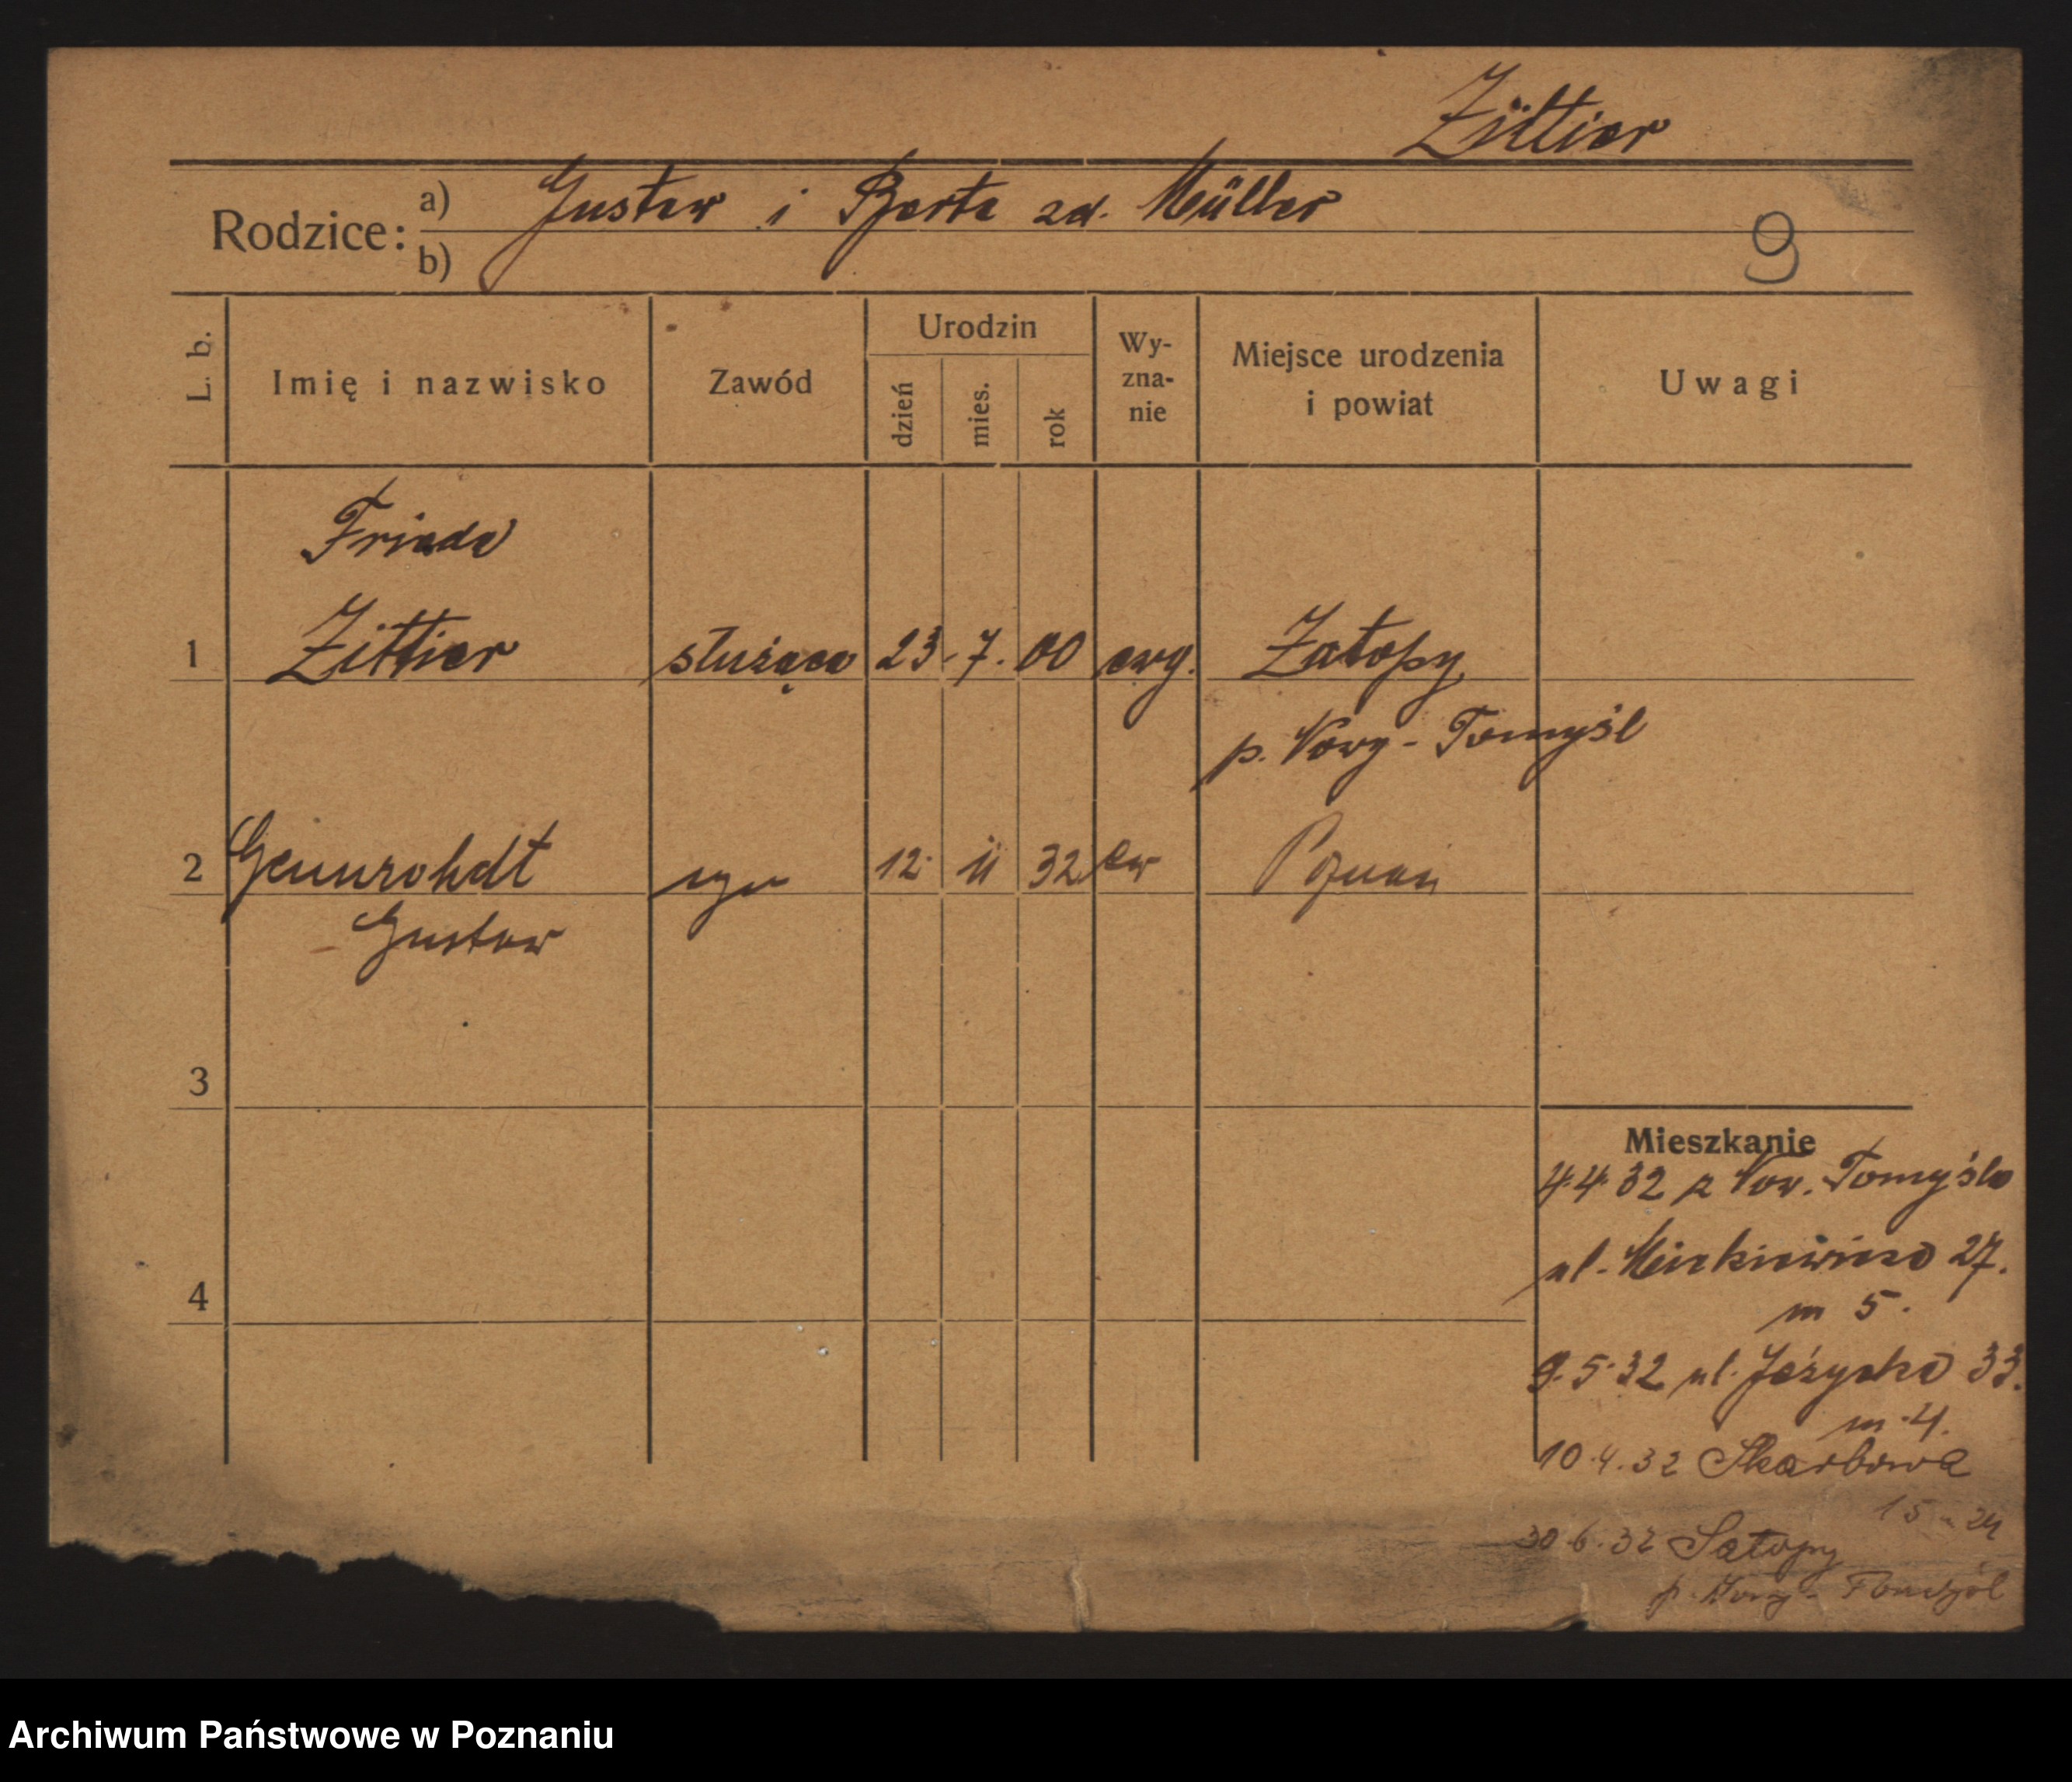 Zittier
Rodzice: a) Gustaw i Berta zd. Müller
b)
9
L. b. Imię i nazwisko Zawód Urodzin dzień mies. rok Wy-zna-nie Miejsce urodzenia i powiat Uwagi
Frieda
1 Zittier służąca 23. 7. 00 ewg. Zatopy
p. Nowy-Tomyśl
2 syn 12. 11 32 ew Poznań
Gustaw
3
Mieszkanie
4.4.32 z Now. Tomyśla
4
ul. Mickiewicza 27.
m 5.
9.5.32 ul. Jeżycka 33.
m. 4.
10.4.32 Skarbowa
15 - 24
30.6.32 Satopy
p. Nowy-Tomyśl
Archiwum Państwowe w Poznaniu